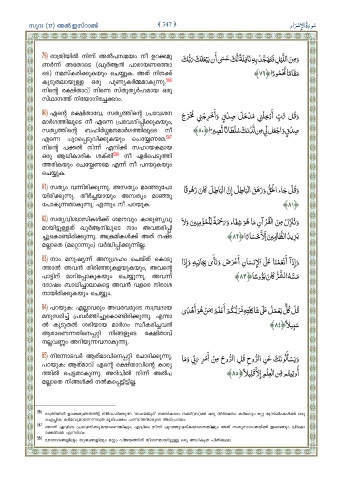 സൂറ: (17) അൽ ഇസ്റാഅ്
{ 347 }
سُورَةُ الإِسْرَاء
79) രാത്രിയിൽ നിന്ന് അൽപസമയം നീ ഉറക്കമു
ണർന്ന് അതോടെ (ഖുർആൻ പാരായണത്തോ
ടെ) നമസ്കരിക്കുകയും ചെയ്യുക. അത് നിനക്ക്
കൂടുതലായുള്ള ഒരു പുണ്യകർമ്മമാകുന്നു.
നിന്റെ രക്ഷിതാവ് നിന്നെ സ്തുത്യർഹമായ ഒരു
സ്ഥാനത്ത് നിയോഗിച്ചേക്കാം.
وَمِنَ اللَّيْلِ فَتَهَجَّدْ بِهِ نَافِلَةً لَّكَ عَسَى أَن يَبْعَثَكَ رَبُّكَ
مَقَامًا مَّحْمُودًا ﴿٧٩﴾
80) എന്റെ രക്ഷിതാവേ, സത്യത്തിന്റെ പ്രവേശന
മാർഗത്തിലൂടെ നീ എന്നെ പ്രവേശിപ്പിക്കുകയും,
സത്യത്തിന്റെ ബഹിർഗ്ഗമനമാർഗത്തിലൂടെ നീ
എന്നെ പുറപ്പെടുവിക്കുകയും ചെയ്യേണമേ.
നിന്റെ പക്കൽ നിന്ന് എനിക്ക് സഹായകമായ
ഒരു ആധികാരിക ശക്തി നീ ഏർപെടുത്തി
ത്തരികയും ചെയ്യേണമേ എന്ന് നീ പറയുകയും
ചെയ്യുക.
وَقُل رَّبِّ أَدْخِلْنِي مُدْخَلَ صِدْقٍ وَأَخْرِجْنِي مُخْرَجَ
صِدْقٍ وَاجْعَل لِّي مِن لَّدُنكَ سُلْطَانًا نَّصِيرًا ﴿٨٠﴾
81) സത്യം വന്നിരിക്കുന്നു. അസത്യം മാഞ്ഞുപോ
യിരിക്കുന്നു. തീർച്ചയായും അസത്യം മാഞ്ഞു
പോകുന്നതാകുന്നു. എന്നും നീ പറയുക.
وَقُلْ جَاء الْحَقُّ وَزَهَقَ الْبَاطِلُ إِنَّ الْبَاطِلَ كَانَ زَهُوقًا
﴿٨١﴾
82) സത്യവിശ്വാസികൾക്ക് ശമനവും കാരുണ്യവു
മായിട്ടുള്ളത് ഖുർആനിലൂടെ നാം അവതരിപ്പി
ച്ചുകൊണ്ടിരിക്കുന്നു. അക്രമികൾക്ക് അത് നഷ്ട
മല്ലാതെ (മറ്റൊന്നും) വർദ്ധിപ്പിക്കുന്നില്ല.
وَنُنَزِّلُ مِنَ الْقُرْآنِ مَا هُوَ شِفَاء وَرَحْمَةٌ لِّلْمُؤْمِنِينَ وَلاَ
يَزِيدُ الظَّالِمِينَ إَلاَّ خَسَارًا ﴿٨٢﴾
83) നാം മനുഷ്യന്ന് അനുഗ്രഹം ചെയ്ത് കൊടു
ത്താൽ അവൻ തിരിഞ്ഞുകളയുകയും, അവന്റെ
പാട്ടിന് മാറിപ്പോകുകയും ചെയ്യുന്നു. അവന്ന്
ദോഷം ബാധിച്ചാലാകട്ടെ അവൻ വളരെ നിരാശ
നായിരിക്കുകയും ചെയ്യും.
وَإِذَا أَنْعَمْنَا عَلَى الإِنسَانِ أَعْرَضَ وَنَأَى بِجَانِبِهِ وَإِذَا
مَسَّهُ الشَّرُّ كَانَ يَؤُوسًا ﴿٨٣﴾
84) പറയുക: എല്ലാവരും അവരവരുടെ സമ്പ്രദായ
മനുസരിച്ച് പ്രവർത്തിച്ചുകൊണ്ടിരിക്കുന്നു. എന്നാ
ൽ കൂടുതൽ ശരിയായ മാർഗം സ്വീകരിച്ചവൻ
ആരാണെന്നതിനെപ്പറ്റി നിങ്ങളുടെ രക്ഷിതാവ്
നല്ലവണ്ണം അറിയുന്നവനാകുന്നു.
قُلْ كُلٌّ يَعْمَلُ عَلَى شَاكِلَتِهِ فَرَبُّكُمْ أَعْلَمُ بِمَنْ هُوَ أَهْدَى
سَبِيلاً ﴿٨٤﴾
85) നിന്നോടവർ ആത്മാവിനെപ്പറ്റി ചോദിക്കുന്നു.
പറയുക: ആത്മാവ് എന്റെ രക്ഷിതാവിന്റെ കാര്യ
ത്തിൽ പെട്ടതാകുന്നു. അറിവിൽ നിന്ന് അൽപ
മല്ലാതെ നിങ്ങൾക്ക് നൽകപ്പെട്ടിട്ടില്ല.
وَيَسْأَلُونَكَ عَنِ الرُّوحِ قُلِ الرُّوحُ مِنْ أَمْرِ رَبِّي وَمَا
أُوتِيتُم مِّن الْعِلْمِ إِلاَّ قَلِيلاً ﴿٨٥﴾